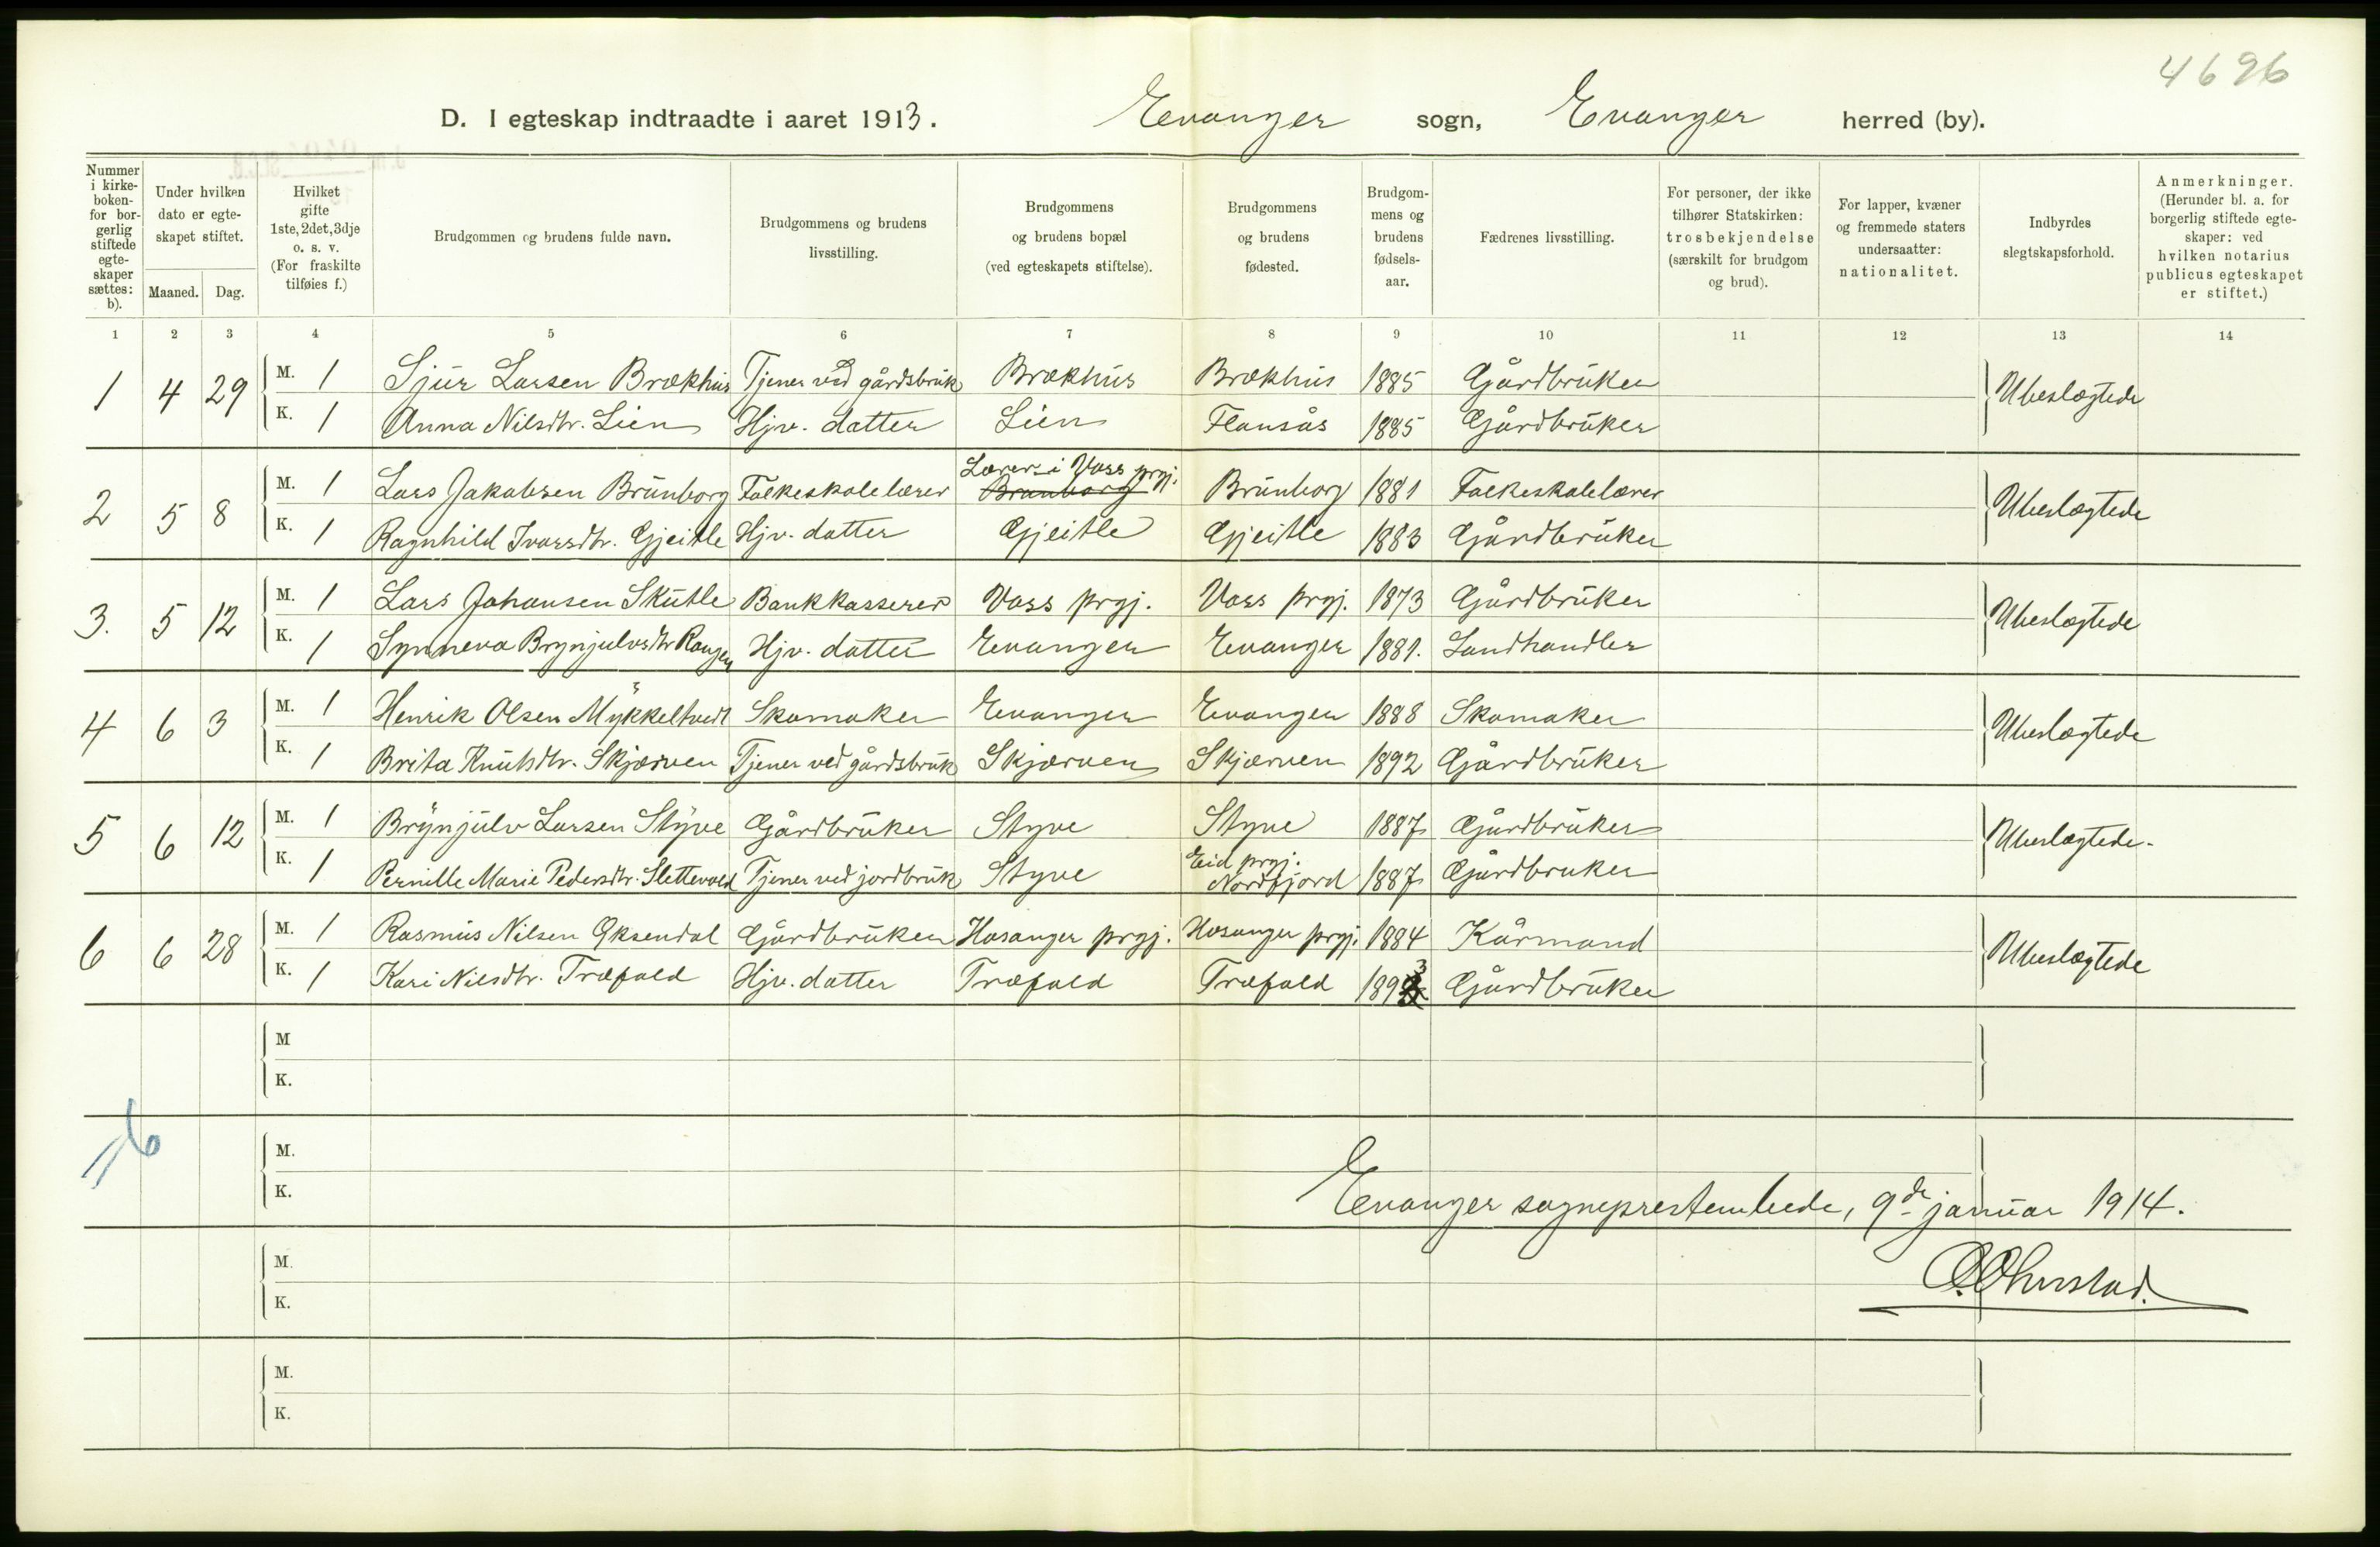 4696
D. I egteskap indtraadte i aaret 1913. Evanger sogn, Evanger herred (by).
Nummer i kirke-boken- for bor-gerlig stiftede egte-skaper sættes: b).
Under hvilken dato er egte-skapet stiftet.
Maaned. Dag.
Hvilket gifte 1ste, 2det, 3dje o. s. v. (For fraskilte tilføies f.)
Brudgommen og brudens fulde navn.
Brudgommens og brudens livsstilling.
Brudgommens og brudens bopæl (ved egteskapets stiftelse).
Brudgommens og brudens fødested.
Brudgom-mens og brudens fødsels-aar.
Fædrenes livsstilling.
For personer, der ikke tilhører Statskirken: trosbekjendelse (særskilt for brudgom og brud).
For lapper, kvæner og fremmede staters undersaatter: nationalitet.
Indbyrdes slegtskapsforhold.
Anmerkninger. (Herunder bl. a. for borgerlig stiftede egte-skaper: ved hvilken notarius publicus egteskapet er stiftet.)
1 2 3 4 5 6 7 8 9 10 11 12 13 14
1 4 29 M. 1 Sjur Larsen Brækhus Tjener ved gårdsbruk Brækhus Brækhus 1885 Gårdbruker Ubeslægtede
K. 1 Anna Nilsdtr. Lien Hjv. datter Lien Flansås 1885 Gårdbruker
2 5 8 M. 1 Lars Jakobsen Brunborg Folkeskolelærer Lærer i Voss prgj. Brunborg Brunborg 1881 Folkeskolelærer Ubeslægtede
K. 1 Ragnhild Ivarsdtr. Gjeitle Hjv. datter Gjeitle Gjeitle 1883 Gårdbruker
3. 5 12 M. 1 Lars Johansen Skutle Bankkasserer Voss prgj. Voss prgj. 1873 Gårdbruker Ubeslægtede
K. 1 Synneva Brynjulvsdtr Hjv. datter Evanger Evanger 1881. Landhandler
4 6 3 M. 1 Henrik Olsen Mykkeltvedt Skomaker Evanger Evanger 1888 Skomaker Ubeslægtede
K. 1 Brita Knutsdtr. Skjærven Tjener ved gårdsbruk Skjærven Skjærven 1892 Gårdbruker
5 6 12 M. 1 Brynjulv Larsen Styve Gårdbruker Styve Styve 1887 Gårdbruker Ubeslægtede.
K. 1 Pernille Marie Pedersdtr. Slettevold Tjener ved jordbruk Styve Eid prgj. Nordfjord 1887 Gårdbruker
6 6 28 M. 1 Rasmus Nilsen Øksendal Gårdbruker Hosanger prgj. Hosanger prgj. 1884 Kårmand Ubeslægtede
K. 1 Kari Nilsdtr. Træfald Hjv. datter Træfald Træfald 1893 Gårdbruker
M
K.
M.
K.
Evanger sogneprestembede, 9de januar 1914.
M.
K.
M.
K.